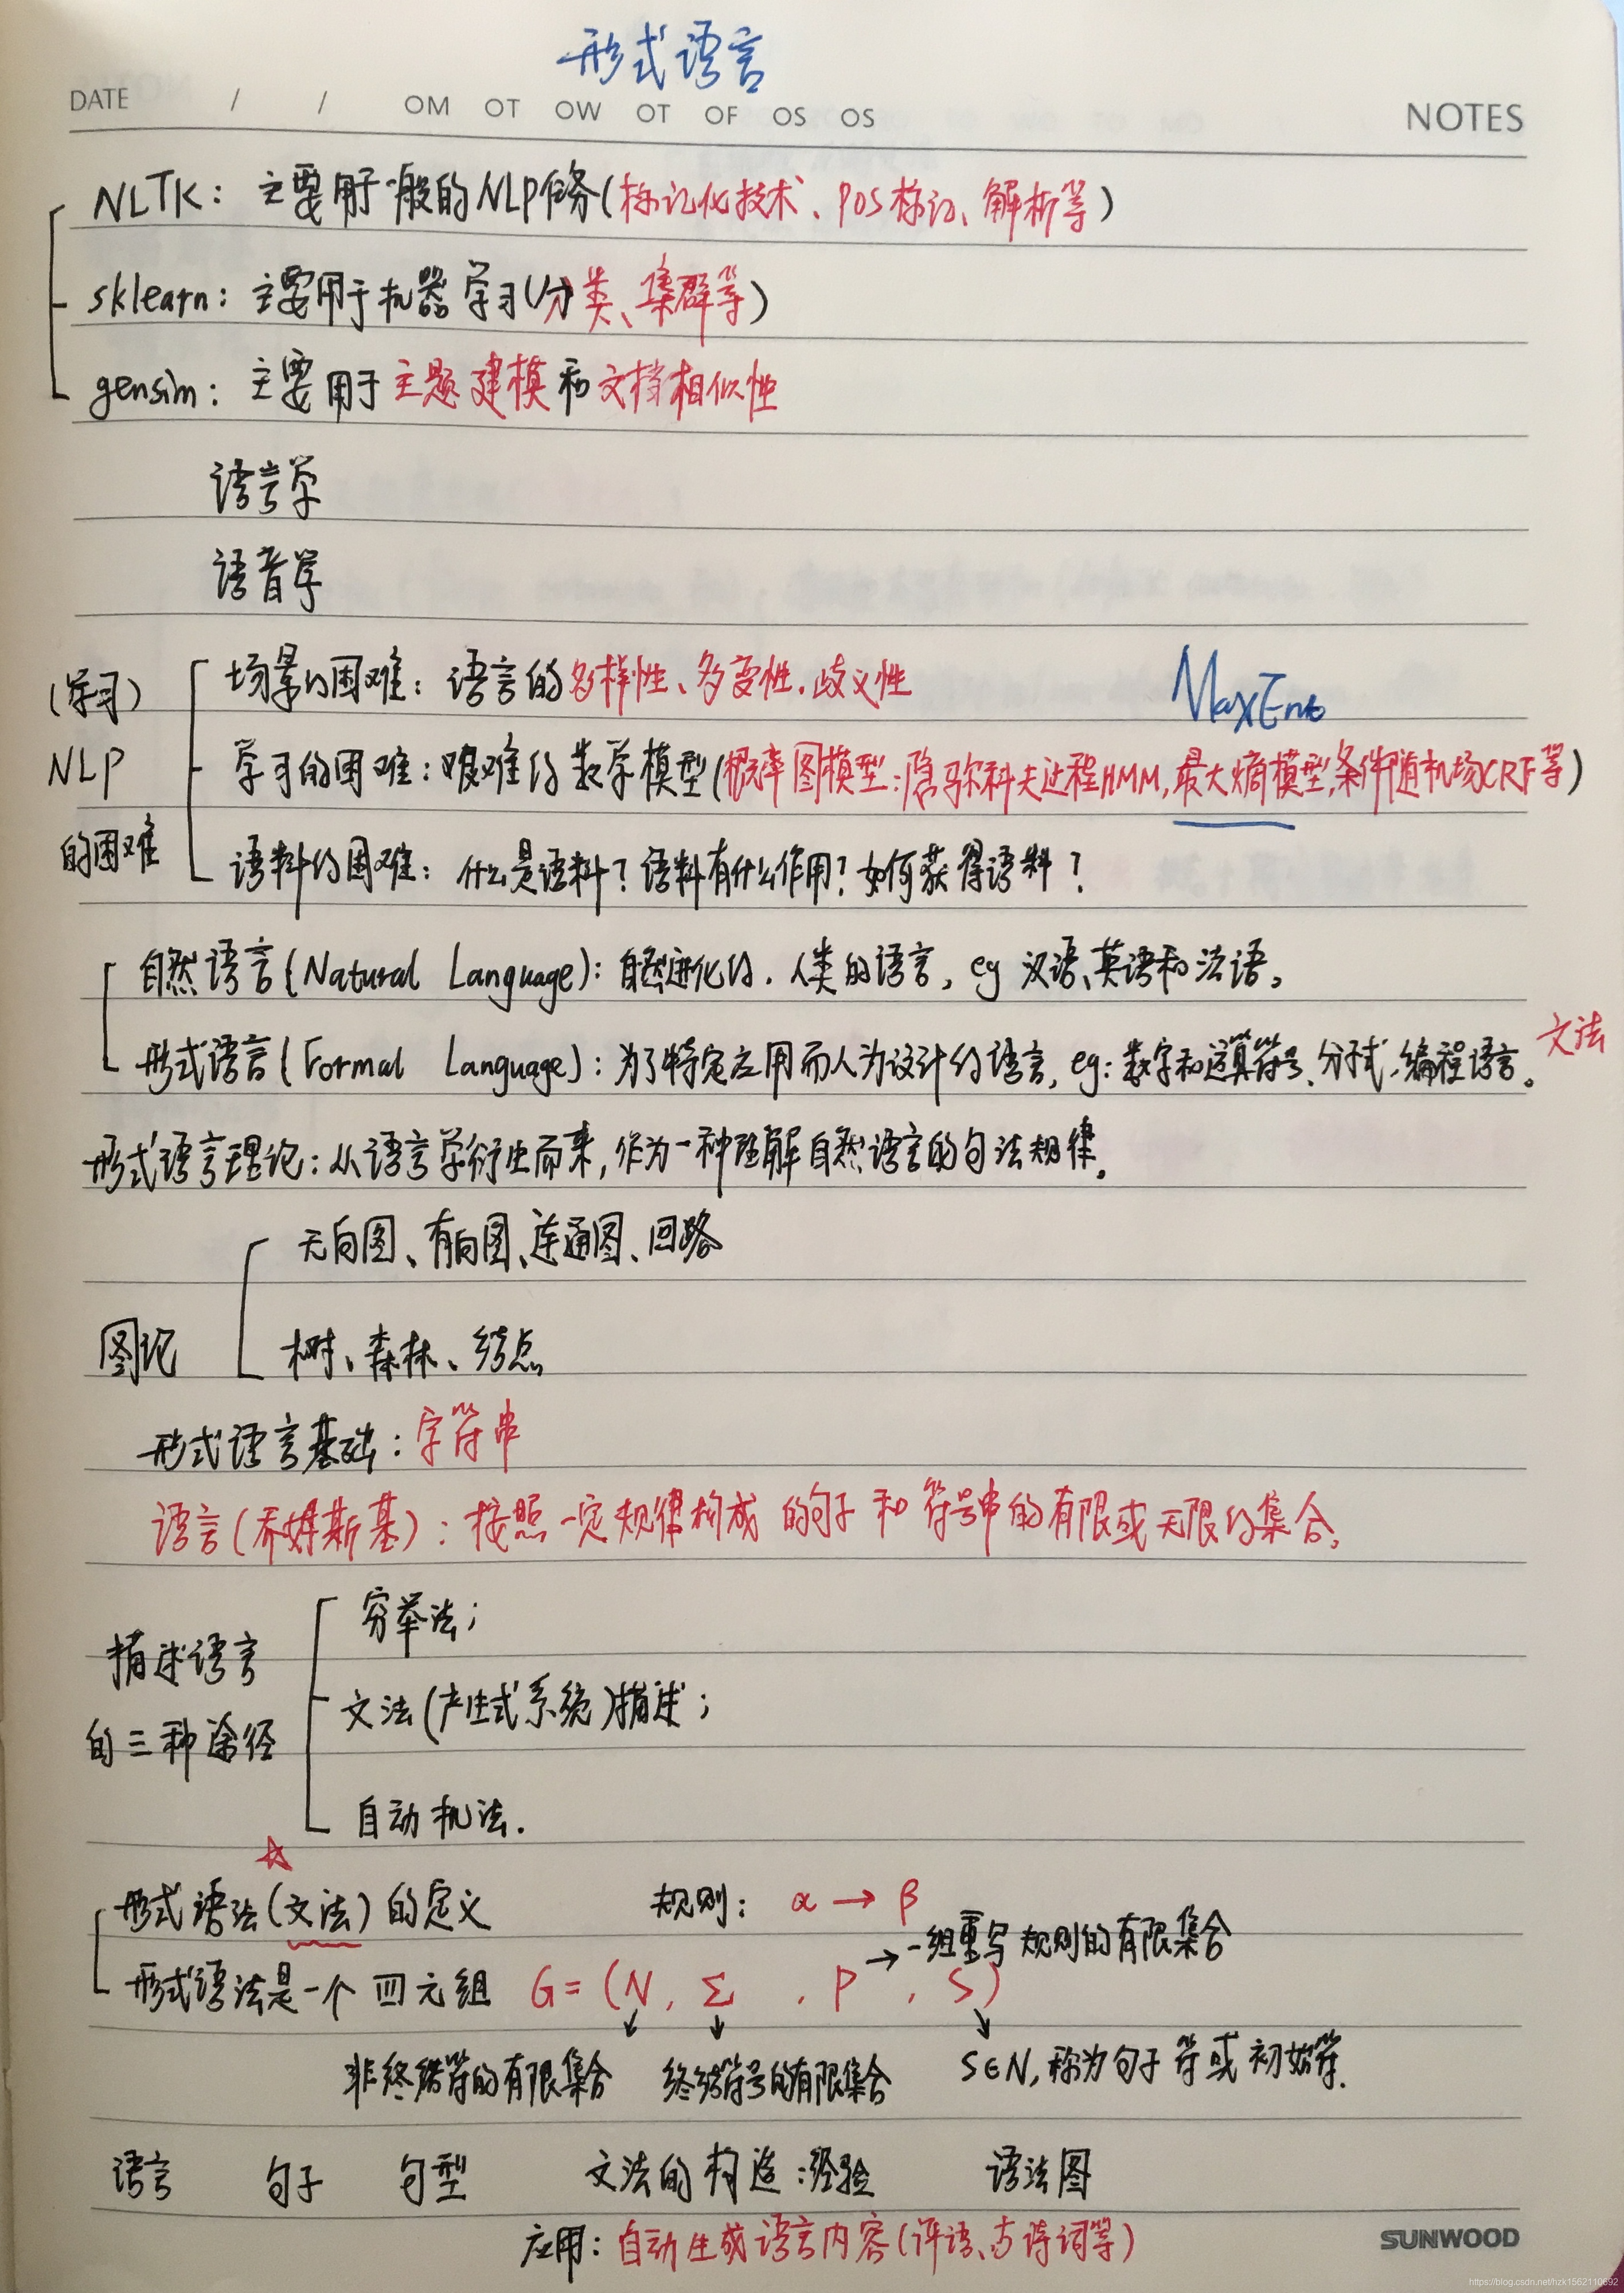 形式语言
DATE / / OM OT OW OT OF OS OS NOTES
NLTK：主要用于一般的NLP任务(标记化技术、POS标记、解析等)
sklearn：主要用于机器学习(分类、集群等)
gensim：主要用于主题建模和文档相似性
语言学
语音学
(学习) 场景的困难：语言的多样性、多变性、歧义性 MaxEnt
NLP 学习的困难：艰难的数学模型(概率图模型：隐马尔科夫过程HMM，最大熵模型，条件随机场CRF等)
的困难 语料的困难：什么是语料？语料有什么作用？如何获得语料？
自然语言(Natural Language)：自然进化的，人类的语言，eg 汉语、英语和法语。
形式语言(Formal Language)：为了特定应用而人为设计的语言，eg：数字和运算符号、分子式、编程语言。 文法
形式语言理论：从语言学衍生而来，作为一种理解自然语言的句法规律。
无向图、有向图、连通图、回路
图论 树、森林、结点
形式语言基础：字符串
语言(乔姆斯基)：按照一定规律构成的句子和符号串的有限或无限的集合。
穷举法；
描述语言
文法(产生式系统)描述；
的三种途径
自动机法.
☆
形式语法(文法)的定义 规则： α → β
→ 一组重写规则的有限集合
形式语法是一个四元组 G = (N, Σ , P , S)
非终结符的有限集合 终结符号的有限集合 S∈N，称为句子符或初始符.
语言 句子 句型 文法的构造：经验 语法图
应用：自动生成语言内容(评语、古诗词等)
SUNWOOD
https://blog.csdn.net/hzk1562110692